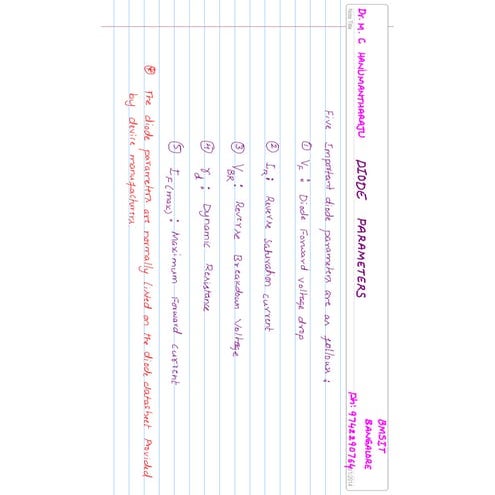 Dr. M. C HANUMANTHARAJU DIODE PARAMETERS BMSIT BANGALORE
Note Title Ph: 9742290764
Five Important diode parameters are as follows:
① VF : Diode Forward voltage drop
② IR : Reverse Saturation current
③ VBR : Reverse Breakdown Voltage
④ rd : Dynamic Resistance
⑤ IF(max) : Maximum Forward current
⊛ The diode parameters are normally listed on the diode datasheet Provided
by device manufacturers